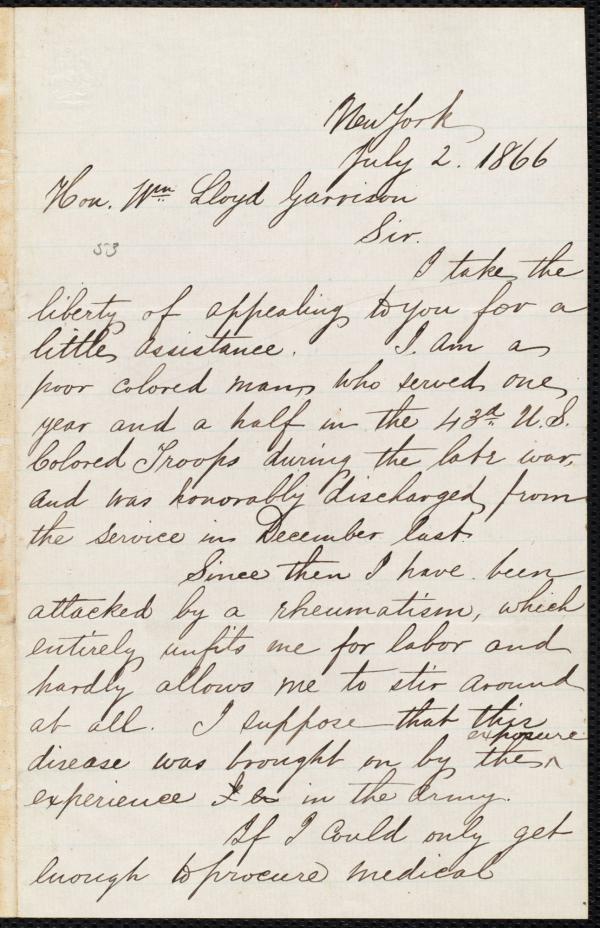 New York
July 2. 1866
Hon. Wm Lloyd Garrison
Sir.
53
I take the
liberty of appealing to you for a
little assistance. I am a
poor colored man, who served one
year and a half in the 43d. U.S.
Colored Troops during the late war,
and was honorably discharged from
the service in December last.
Since then I have been
attacked by a rheumatism, which
entirely unfits me for labor and
hardly allows me to stir around
at all. I suppose that this
exposure
disease was brought on by the ^
experience I in the army.
If I could only get
enough to procure medical